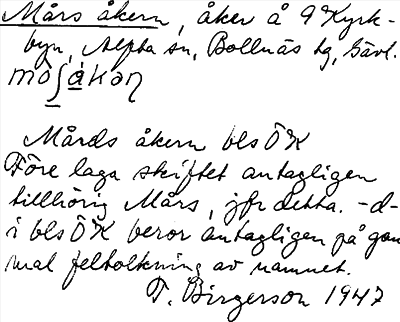 Mårs åkern, åker å 9 Kyrk-
byn, Alfta sn, Bollnäs tg, Gävl.
mo̊ʃákəη
Mårds åkern bls ÖK
Före laga skiftet antagligen
tillhörig Mårs, jfr detta. -d-
i bls ÖK beror antagligen på gam
mal feltolkning av namnet.
T. Birgerson 1947